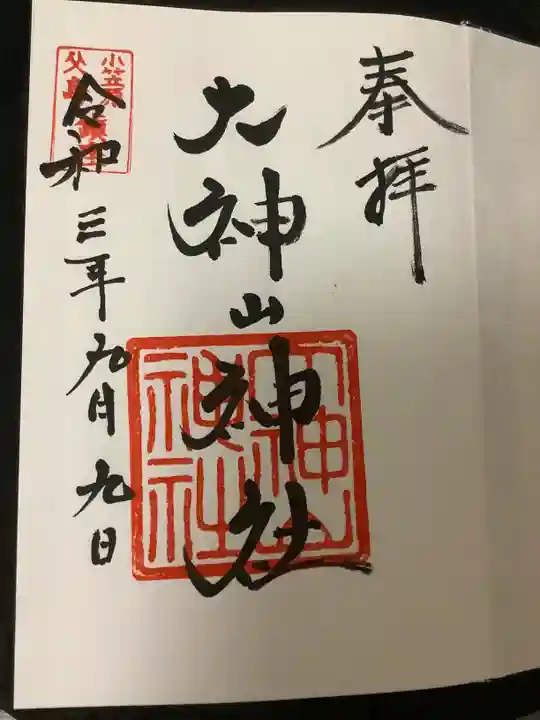 奉拝
大神山神社
大神山
神社
令和三年九月九日
小笠原
父島